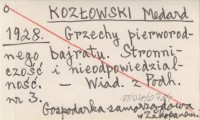 KOZŁOWSKI Medard
1928. Grzechy pierworod-
nego bajratu. Stronni-
czość i nieodpowiedzial-
ność. — Wiad. z Podh.
nr 3.
Gospodarka samorządowa
w Zakopanem.